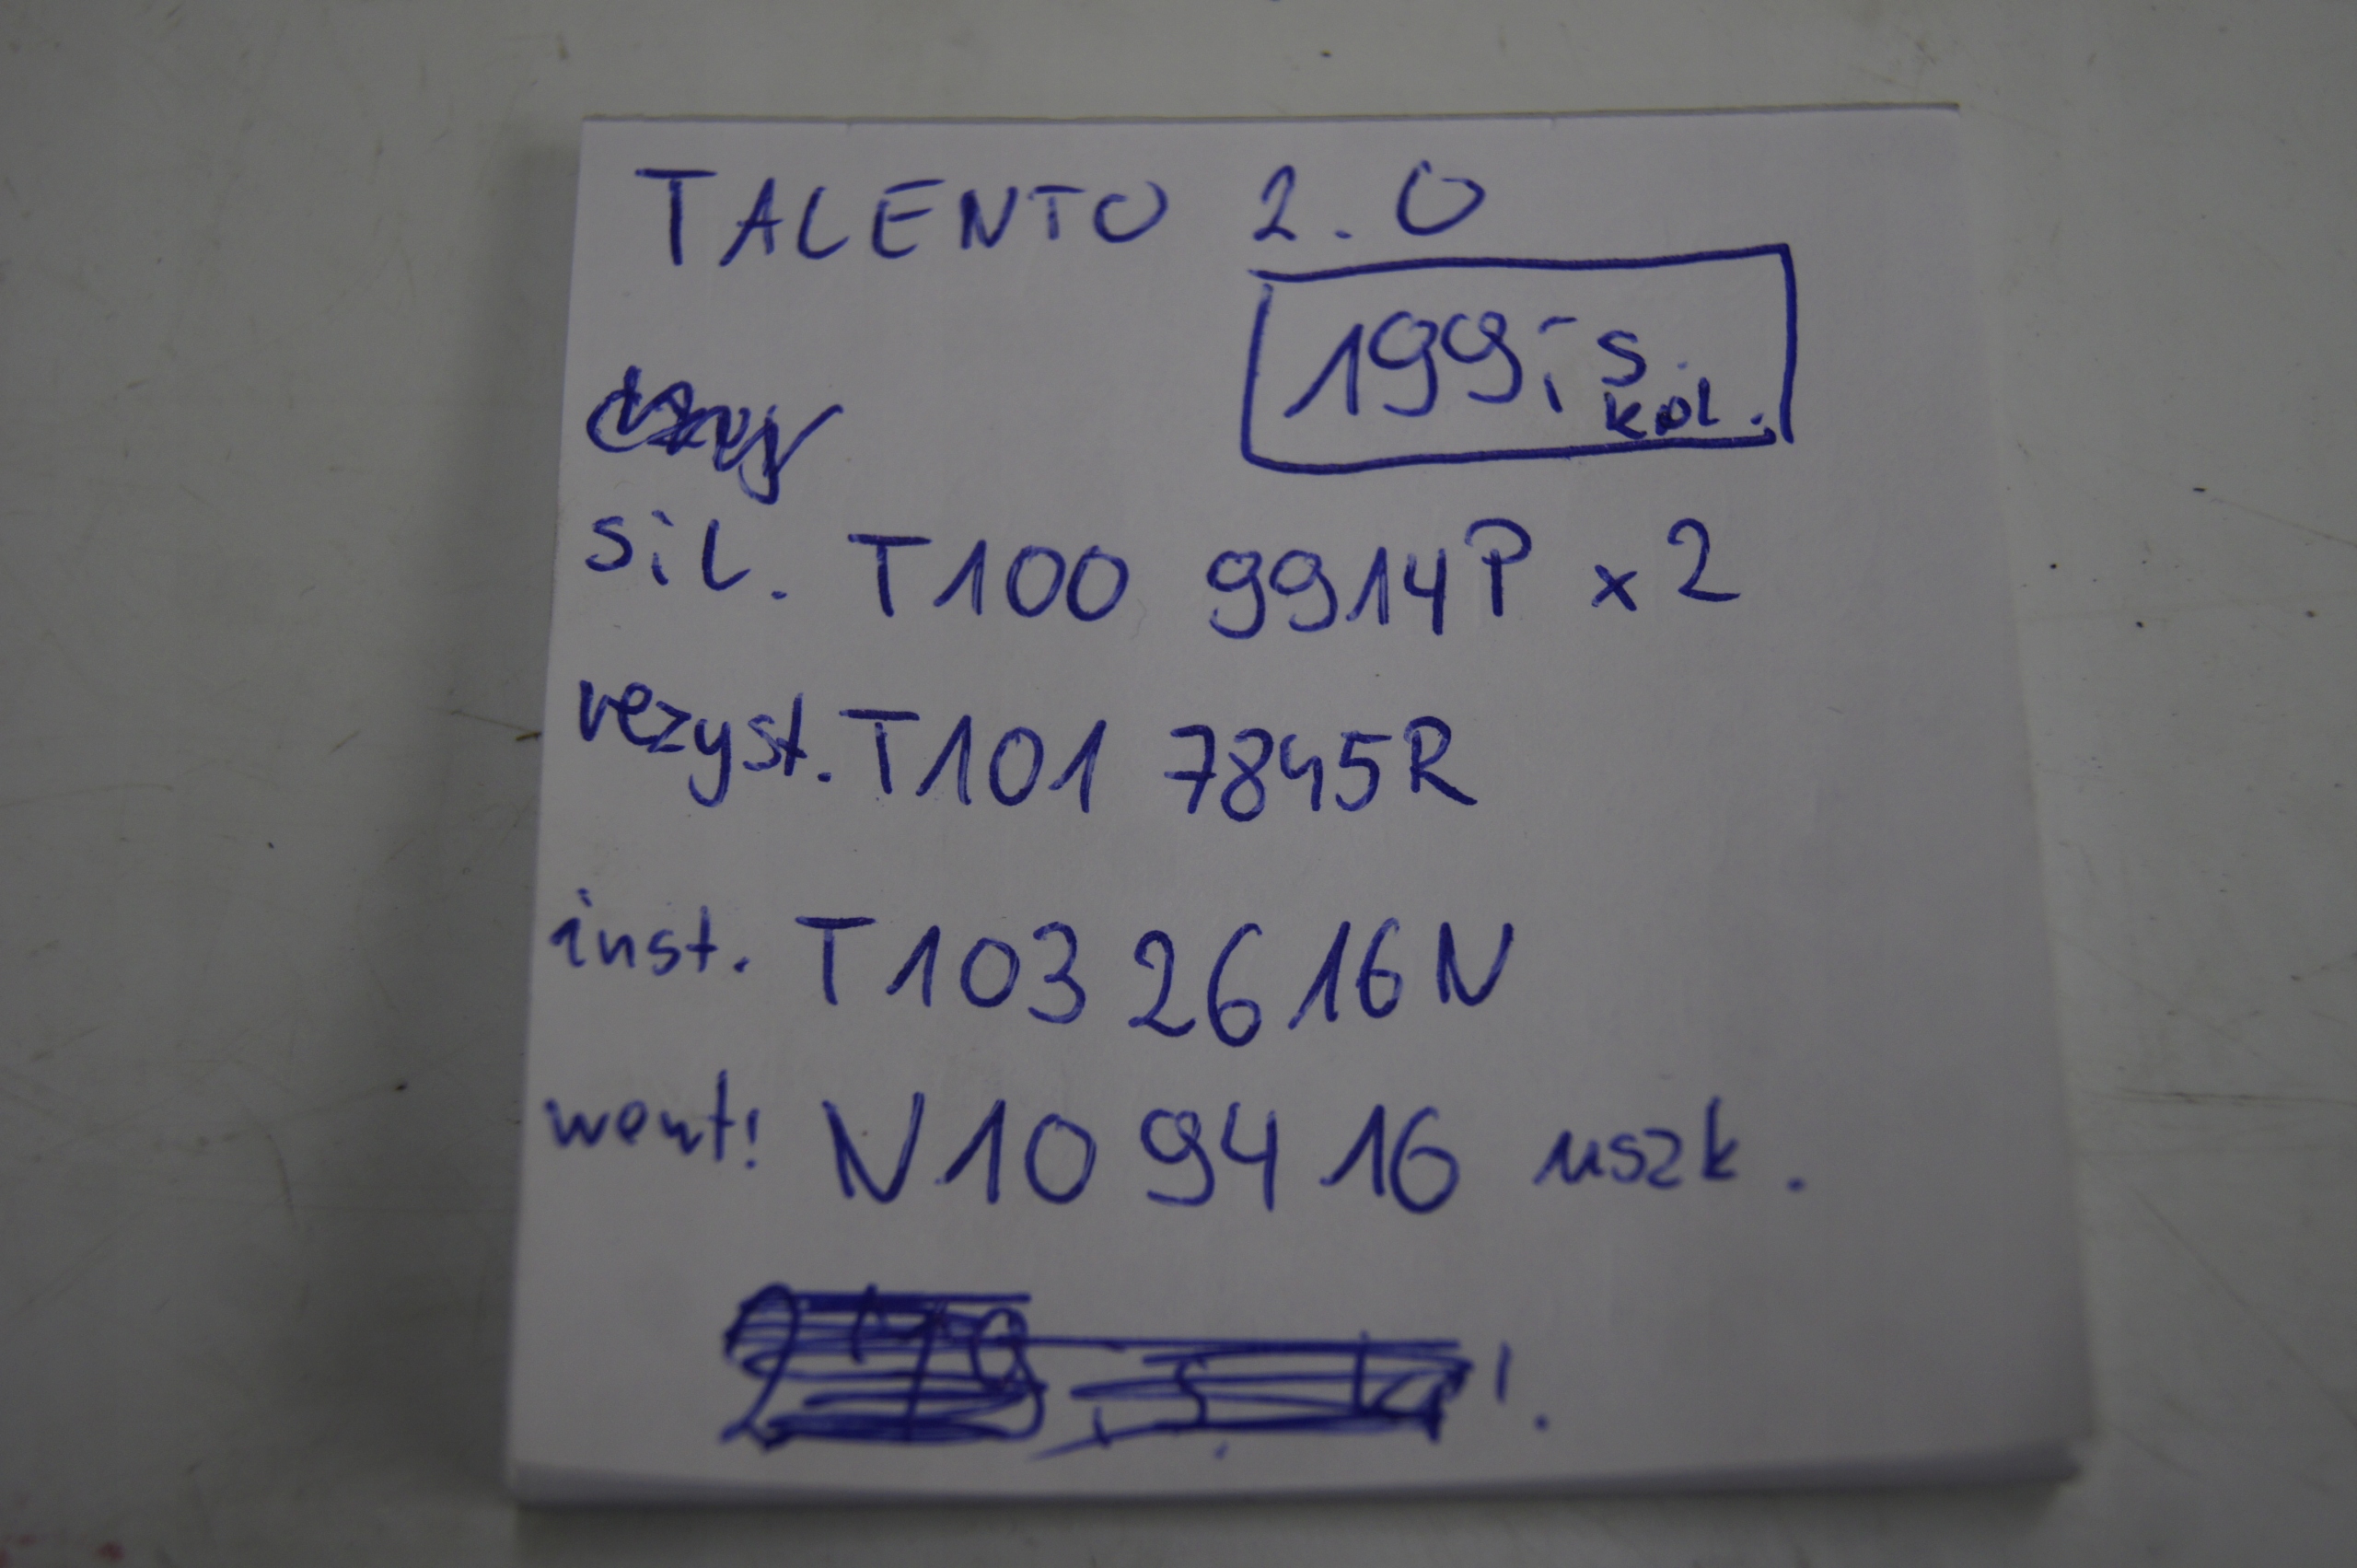 TALENTO 2.0
199,- s.
kol.
sil. T100 9914P x2
rezyst. T101 7845R
inst. T103 2616N
went! N10 9416 uszk.